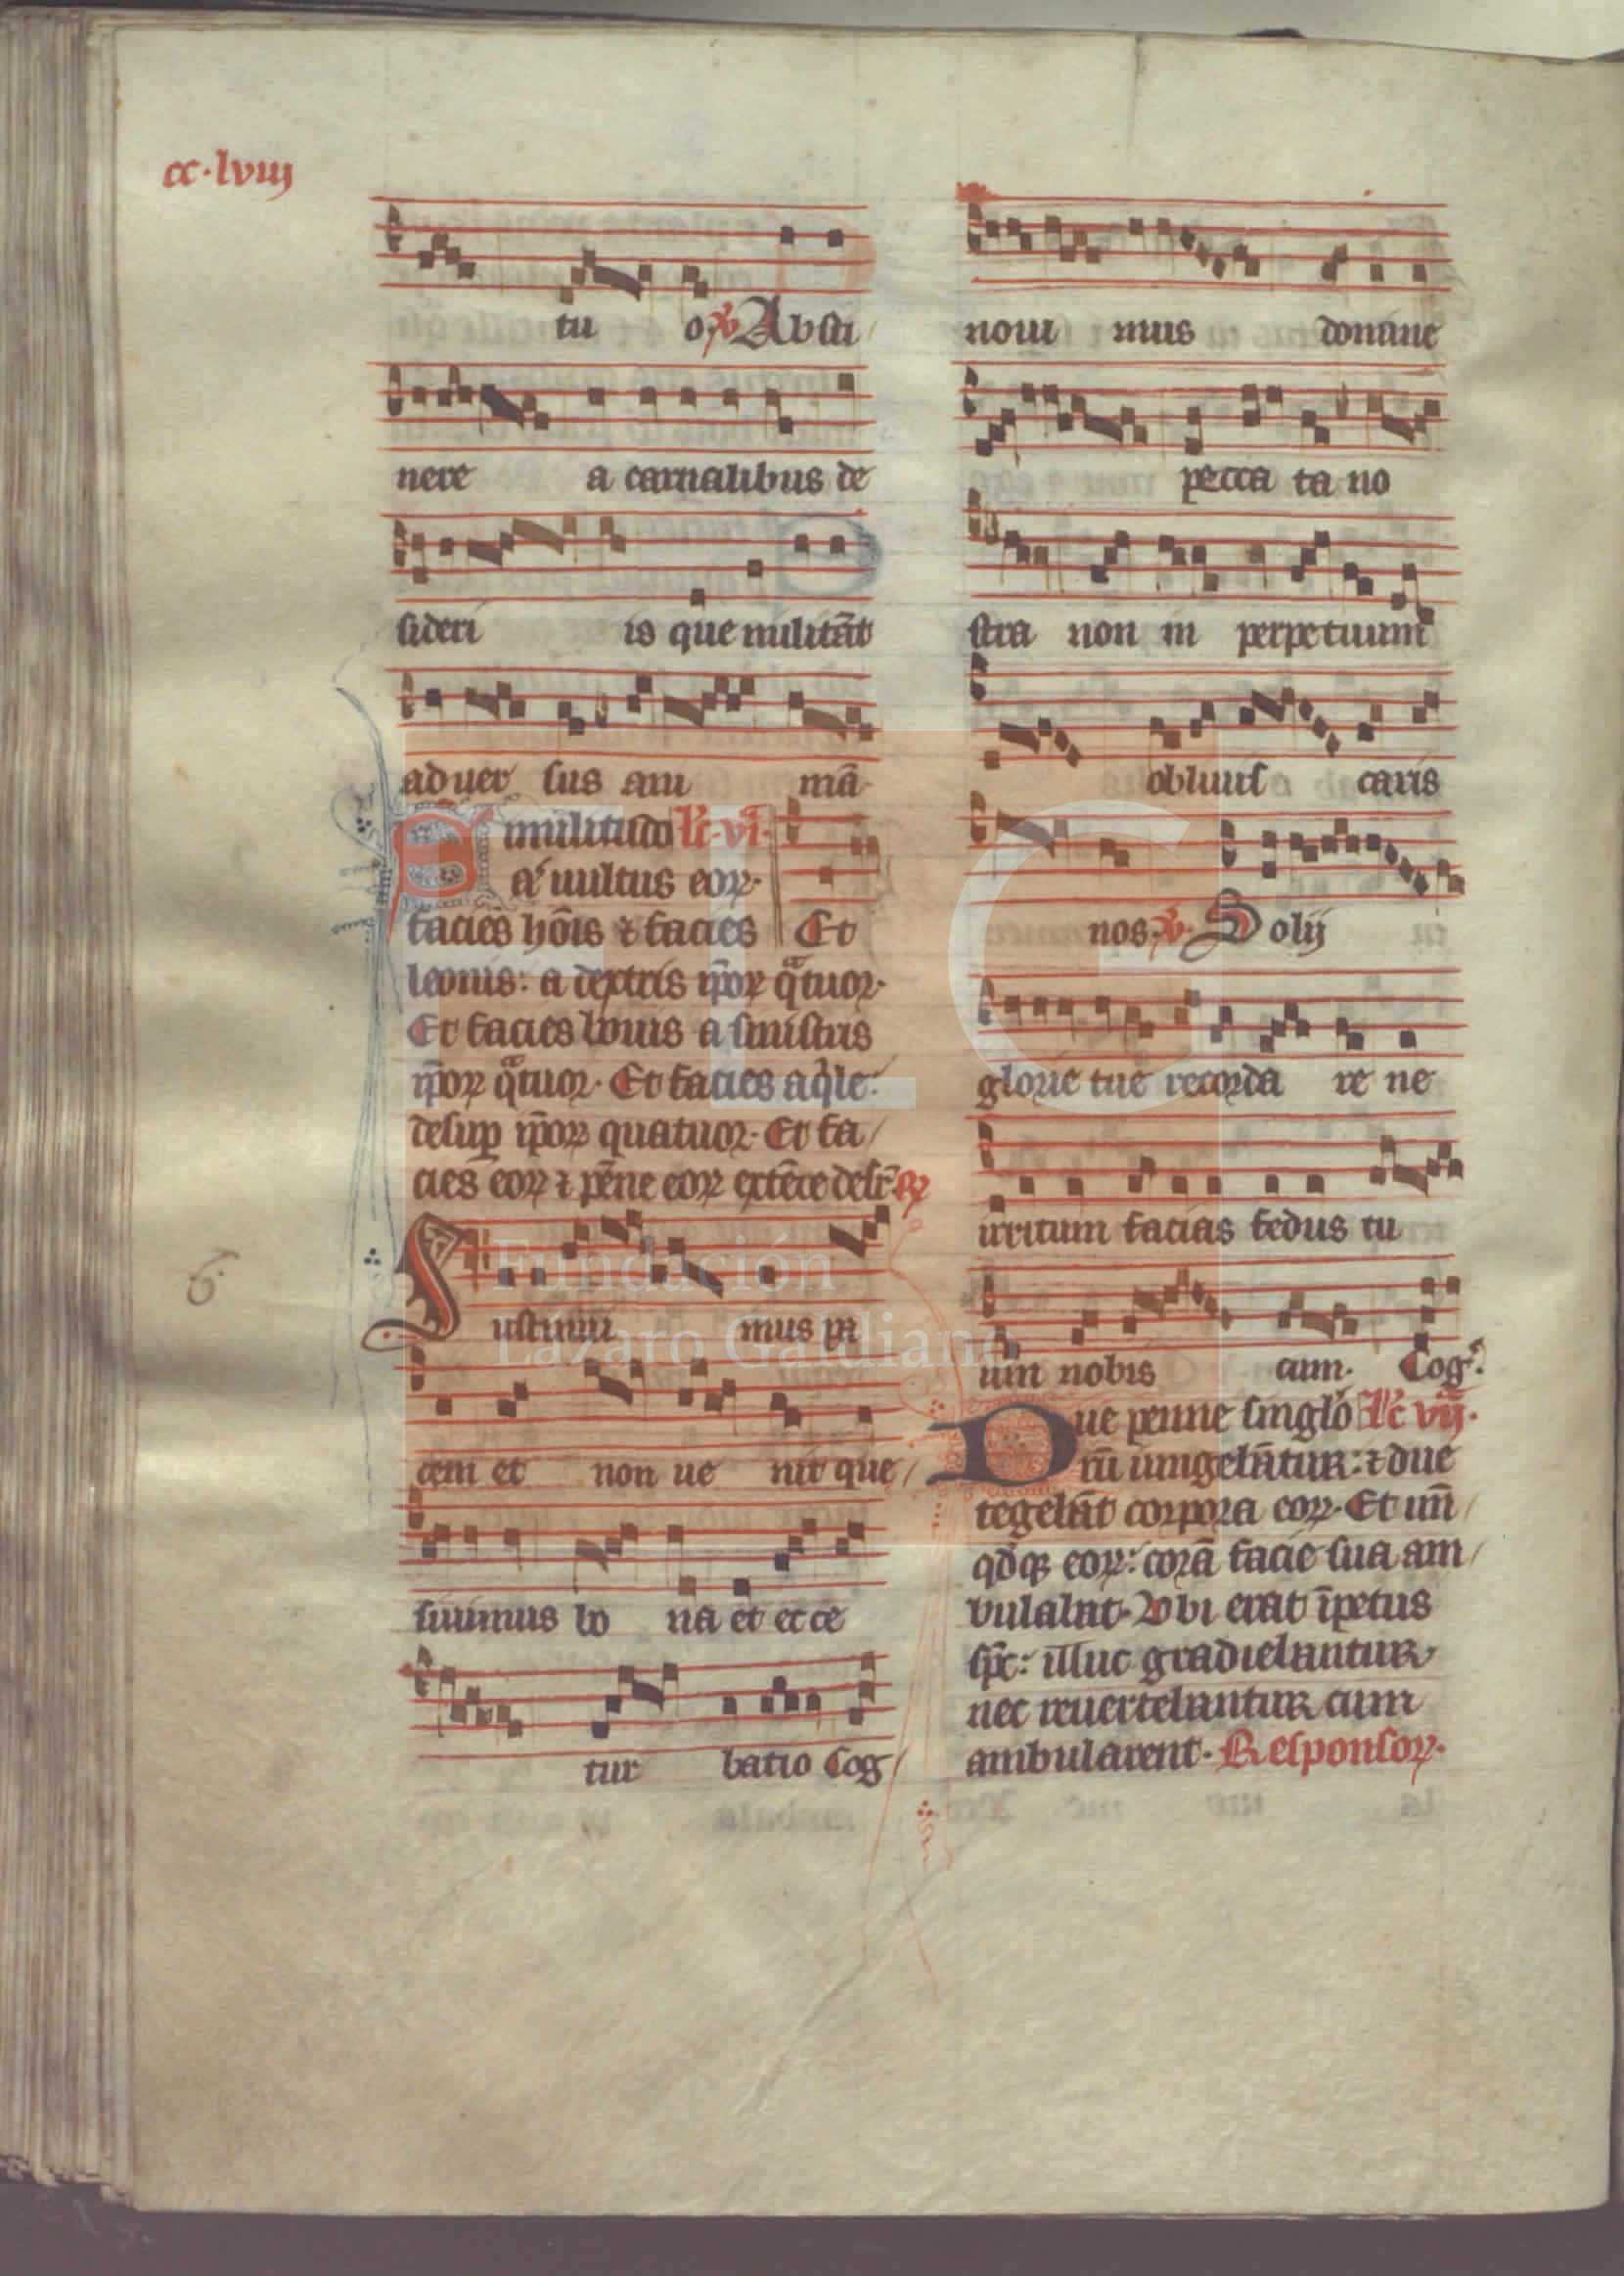 cc·lviij
tu o. ℣ Absti
nere a carnalibus de
sideri is que militāt
aduer sus ani mā
Similitudo lc̄. vi.
āt uultus eoꝝ.
facies hōis ⁊ facies Et
leonis: a dextris ip̄oꝝ qͣtuor.
Et facies bouis a sinistris
ip̄oꝝ qͣtuor. Et facies aqͥle:
desuꝑ ip̄oꝝ quatuor. Et fa
cies eoꝝ ⁊ pēne eoꝝ extēte desr̄. ℟
Sustinui mus pa
cem et non ue nit que
siuimus bo na et ecce
tur batio Cog
6
noui mus domine
pecca ta no
stra non in perpetuum
obliuis caris
nos. ℣. Solij
glorie tue recorda re ne
irritum facias fedus tu
um nobis cum. Cog̅.
Due penne singlo lc̄ vij.
rū iungebāntur: ⁊ due
tegebāt corpora eoꝝ. Et unū
qdqꝫ eoꝝ: corā facie sua am
bulabat. Ubi erat īpetus
sp̄c: illuc gradiebantur
nec reuertebantur cum
ambularent. Responsoꝝ.
Fundación
Lázaro Galdiano